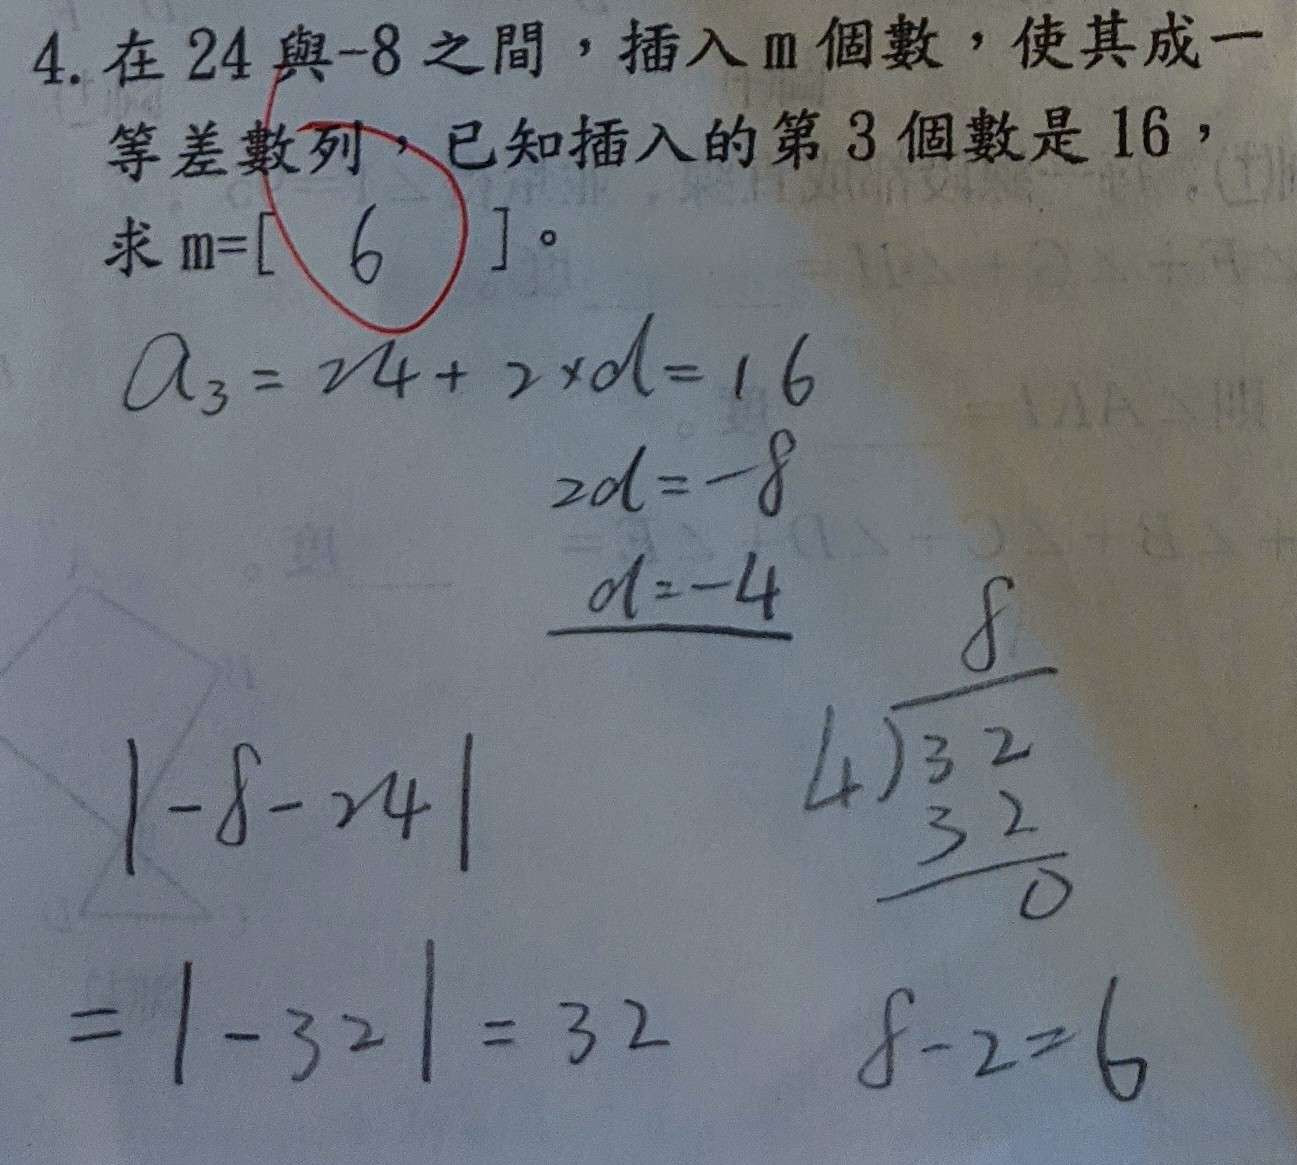 4. 在 24 與-8 之間，插入 m 個數，使其成一
等差數列，已知插入的第 3 個數是 16，
求 m=[ 6 ]。
a₃ = 24 + 2×d = 16
2d = -8
d = -4
8
4)32
32
0
|-8-24|
= |-32| = 32
8-2=6